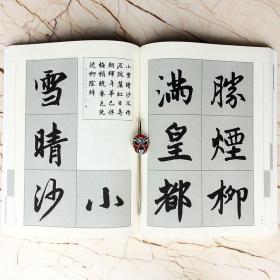 勝煙柳
滿皇都
小雪晴沙不作
泥疏簾紅日弄
朝暉年華已伴
梅梢晚春色先
從柳
小
雪晴沙